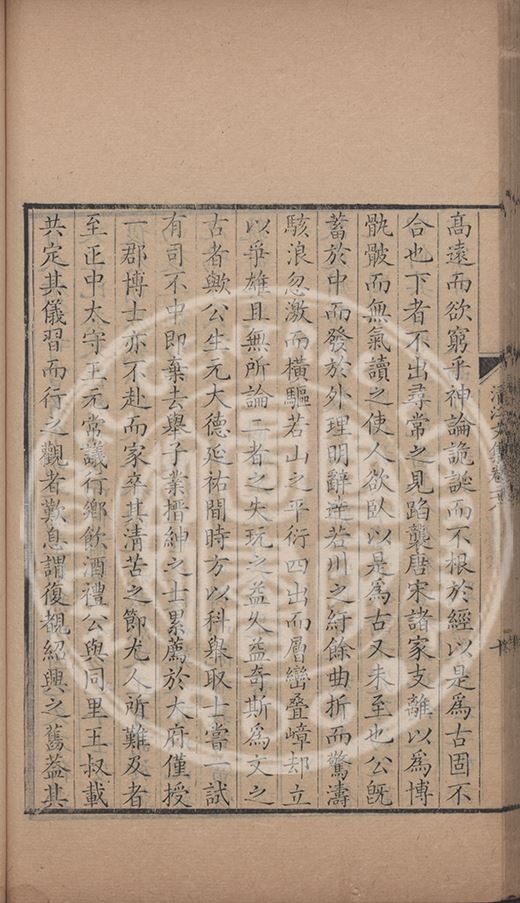 高遠而欲窮乎神論詭誕而不根於經以是爲古固不
合也下者不出尋常之見蹈襲唐宋諸家支離以爲博
骫骳而無氣讀之使人欲臥以是爲古又未至也公旣
蓄於中而發於外理明辭達若川之紆餘曲折而驚濤
駭浪忽激而橫驅若山之平衍四出而層巒疊嶂却立
以爭雄且無所論二者之失玩之益久益奇斯爲文之
古者歟公生元大德延祐間時方以科舉取士嘗一試
有司不中即棄去舉子業搢紳之士累薦於大府僅授
一郡博士亦不赴而家卒其清苦之節尤人所難及者
至正中太守王元常議行鄉飲酒禮公與同里王叔載
共定其儀習而行之觀者歎息謂復覩紹興之舊葢其